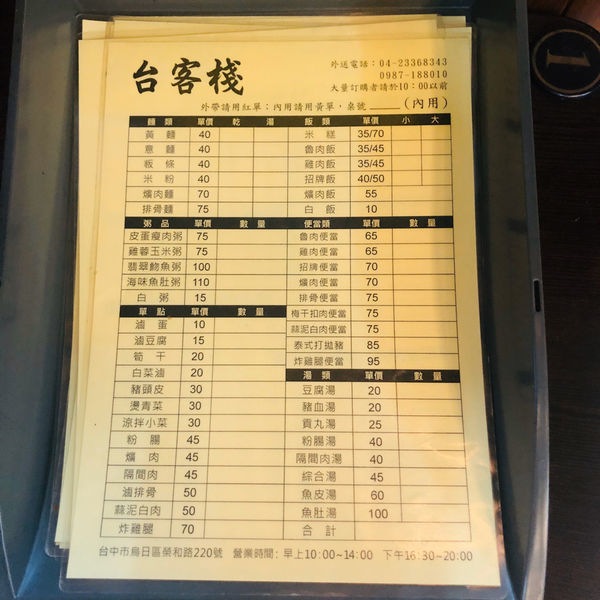 台客棧
外送電話：04-23368343
0987-188010
大量訂購者請於10：00以前
外帶請用紅單；內用請用黃單，桌號＿＿＿（內用）
麵類 單價 乾 湯
黃麵 40
意麵 40
粄條 40
米粉 40
爌肉麵 70
排骨麵 75
粥品 單價 數量
皮蛋瘦肉粥 75
雞蓉玉米粥 75
翡翠魩魚粥 100
海味魚肚粥 110
白粥 15
單點 單價 數量
滷蛋 10
滷豆腐 15
筍干 20
白菜滷 20
豬頭皮 30
燙青菜 30
涼拌小菜 30
粉腸 45
爌肉 45
隔間肉 45
滷排骨 50
蒜泥白肉 50
炸雞腿 70
飯類 單價 小 大
米糕 35/70
魯肉飯 35/45
雞肉飯 35/45
招牌飯 40/50
爌肉飯 55
白飯 10
便當類 單價 數量
魯肉便當 65
雞肉便當 65
招牌便當 70
爌肉便當 70
排骨便當 75
梅干扣肉便當 75
蒜泥白肉便當 75
泰式打拋豬 85
炸雞腿便當 95
湯類 單價 數量
豆腐湯 20
豬血湯 20
貢丸湯 25
粉腸湯 40
隔間肉湯 40
綜合湯 45
魚皮湯 60
魚肚湯 100
合計
台中市烏日區榮和路220號 營業時間：早上10:00~14:00 下午16:30~20:00
1